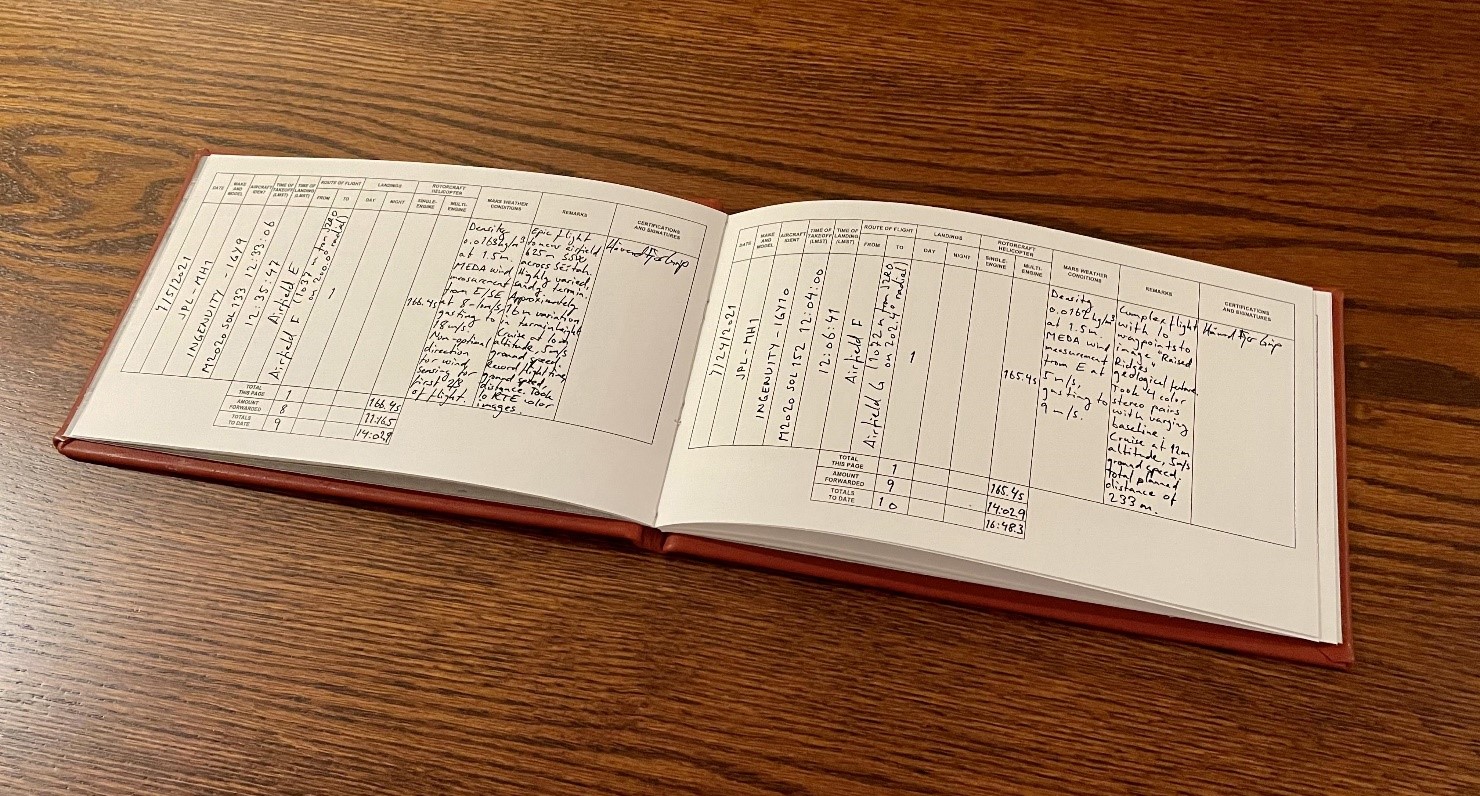 DATE
MAKE AND MODEL
AIRCRAFT IDENT
TIME OF TAKEOFF (LMST)
TIME OF LANDING (LMST)
ROUTE OF FLIGHT
FROM
TO
LANDINGS
DAY
NIGHT
ROTORCRAFT HELICOPTER
SINGLE-ENGINE
MULTI-ENGINE
MARS WEATHER CONDITIONS
REMARKS
CERTIFICATIONS AND SIGNATURES
7/5/2021
JPL - MH1
INGENUITY - IGY9
M2020 SOL 133 12:33:06
12:35:47
Airfield E
Airfield F (1037 m from JZRO
on 200.0° radial)
1
166.4s
Density
0.0163 kg/m³
at 1.5m.
MEDA wind
measurement
from E/SE
at 8 m/s,
gusting to
18 m/s
Non-optimal
direction
for wind
sensing for
first 2/3
of flight.
Epic flight
to new airfield
625 m SSW
across Séítah.
Highly varied,
sandy terrain.
Approximately
16m variation
in terrain height
Cruise at 10m
altitude, 5m/s
ground speed.
Record flight time,
ground speed,
distance. Took
10 RTE color
images.
Håvard Fjær Grip
TOTAL THIS PAGE 1 166.4s
AMOUNT FORWARDED 8 11:16.5
TOTALS TO DATE 9 14:02.9
DATE
MAKE AND MODEL
AIRCRAFT IDENT
TIME OF TAKEOFF (LMST)
TIME OF LANDING (LMST)
ROUTE OF FLIGHT
FROM
TO
LANDINGS
DAY
NIGHT
ROTORCRAFT HELICOPTER
SINGLE-ENGINE
MULTI-ENGINE
MARS WEATHER CONDITIONS
REMARKS
CERTIFICATIONS AND SIGNATURES
7/24/2021
JPL - MH1
INGENUITY - IGY10
M2020 SOL 152 12:04:00
12:06:41
Airfield F
Airfield G (1072 m from JZRO
on 202.4° radial)
1
165.4s
Density
0.0162 kg/m³
at 1.5m.
MEDA wind
measurement
from E at
5 m/s,
gusting to
9 m/s.
Complex flight
with 10
waypoints to
image "Raised
Ridges"
geological feature.
Took 4 color
stereo pairs
with varying
baseline.
Cruise at 12m
altitude, 5m/s
ground speed.
Total planned
distance of
233 m.
Håvard Fjær Grip
TOTAL THIS PAGE 1 165.4s
AMOUNT FORWARDED 9 14:02.9
TOTALS TO DATE 10 16:48.3